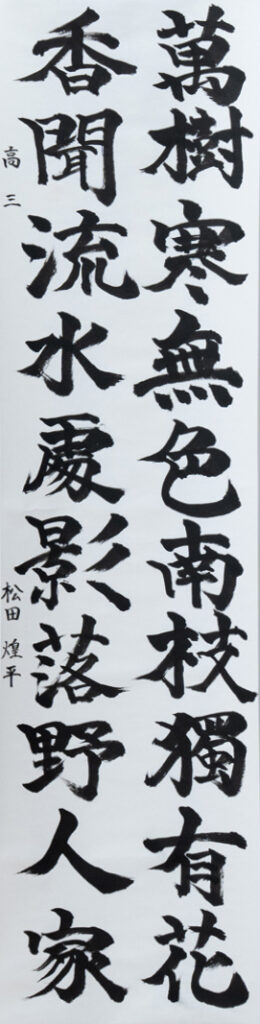 萬樹寒無色南枝獨有花
香聞流水處影落野人家
高三 松田煌平